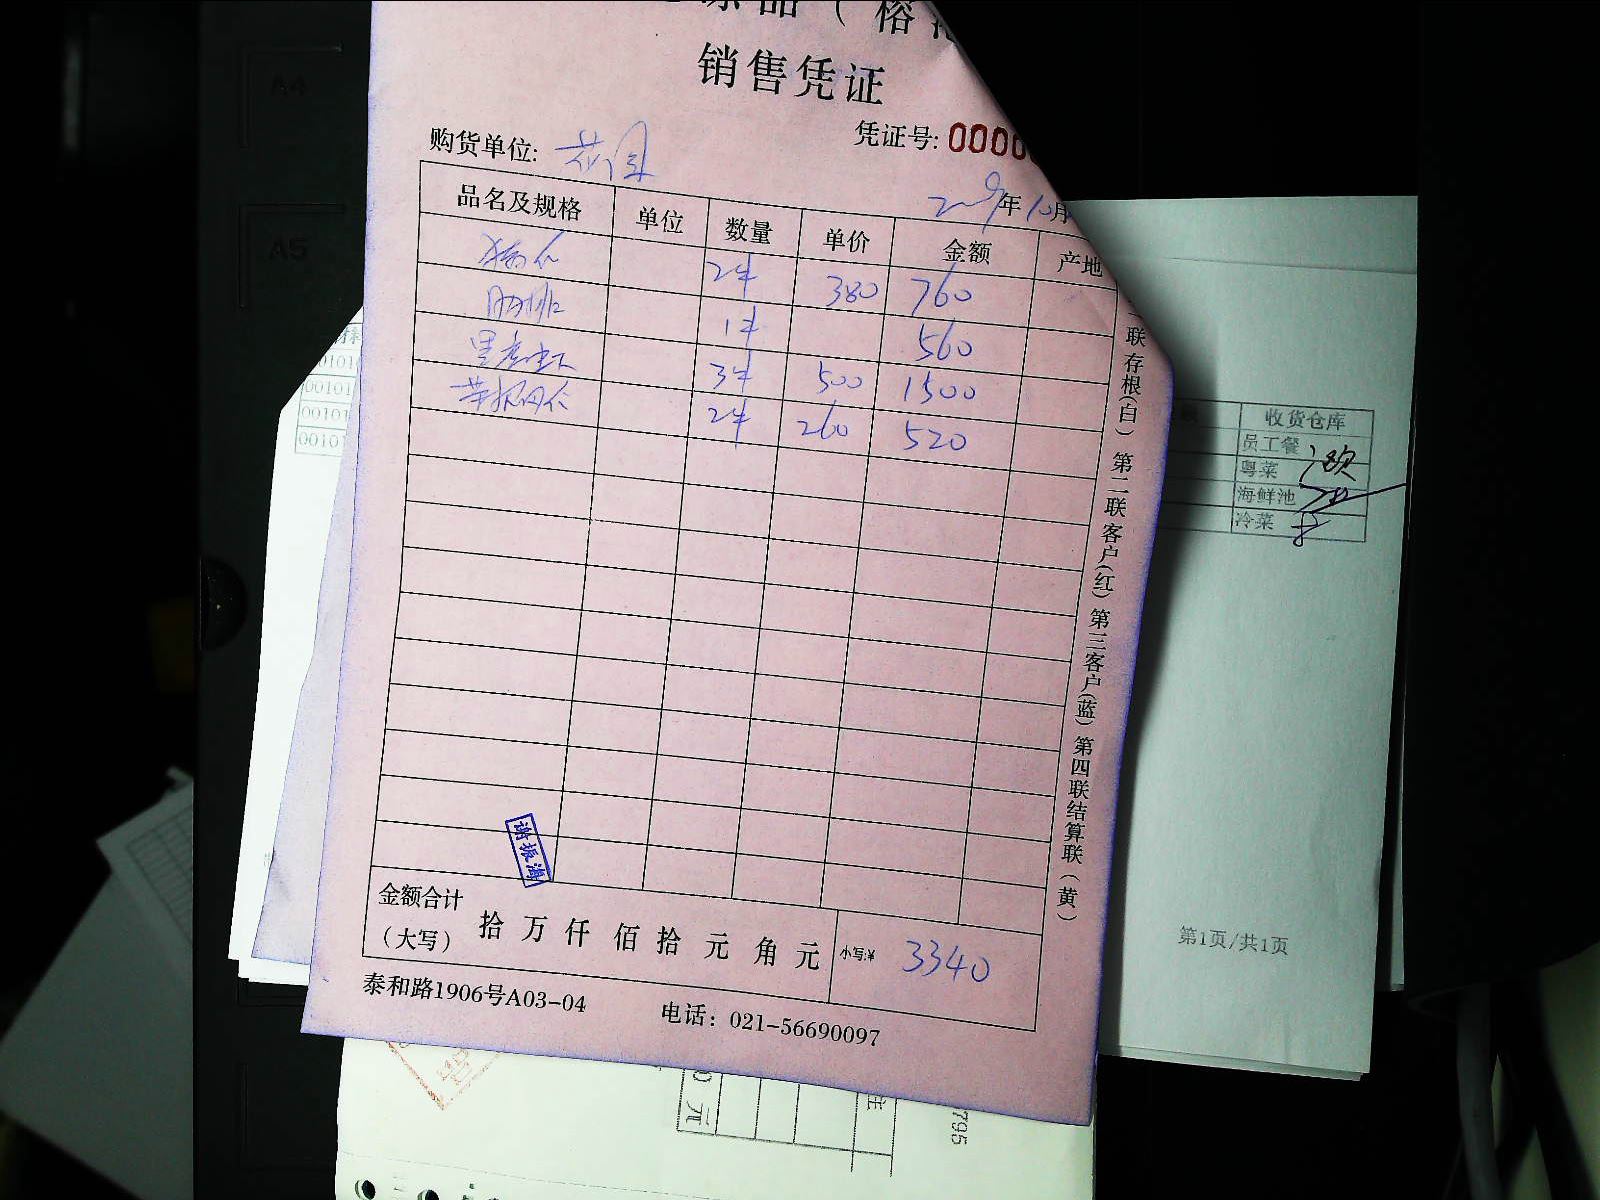 品（榕
销售凭证
凭证号: 0000
购货单位: 花园
年10月
品名及规格 单位 数量 单价 金额 产地
2件 380 760
肋排 1件 560
黑虎虾 3件 500 1500
2件 260 520
联存根(白) 第二联客户(红) 第三客户(蓝) 第四联结算联(黄)
谢振海
金额合计
(大写) 拾 万 仟 佰 拾 元 角 元 小写:¥ 3340
泰和路1906号A03-04 电话: 021-56690097
00101
00101
00101
00101
收货仓库
员工餐
粤菜
海鲜池
冷菜
第1页/共1页
0元
注
795
A4
A5